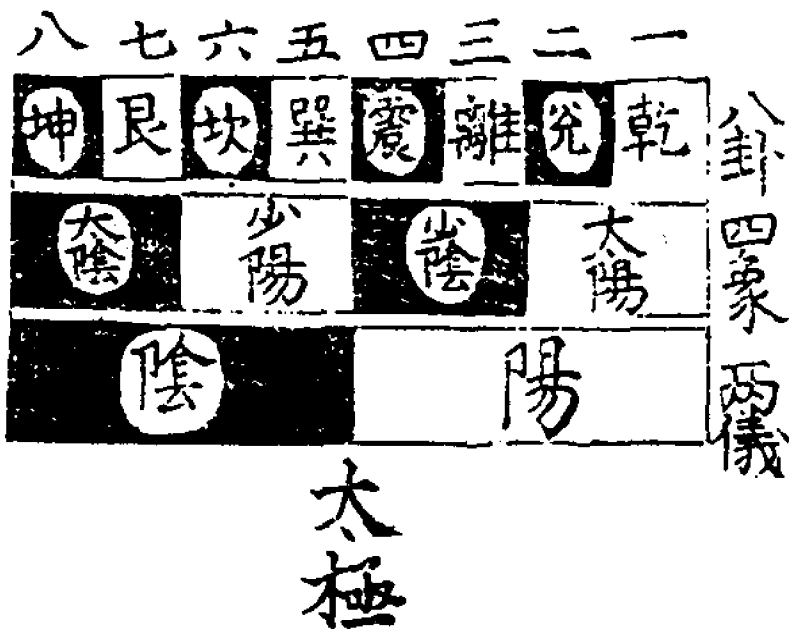 八 七 六 五 四 三 二 一
坤 艮 坎 巽 震 離 兌 乾 八卦
太陰 少陽 少陰 太陽 四象
陰 陽 兩儀
太極